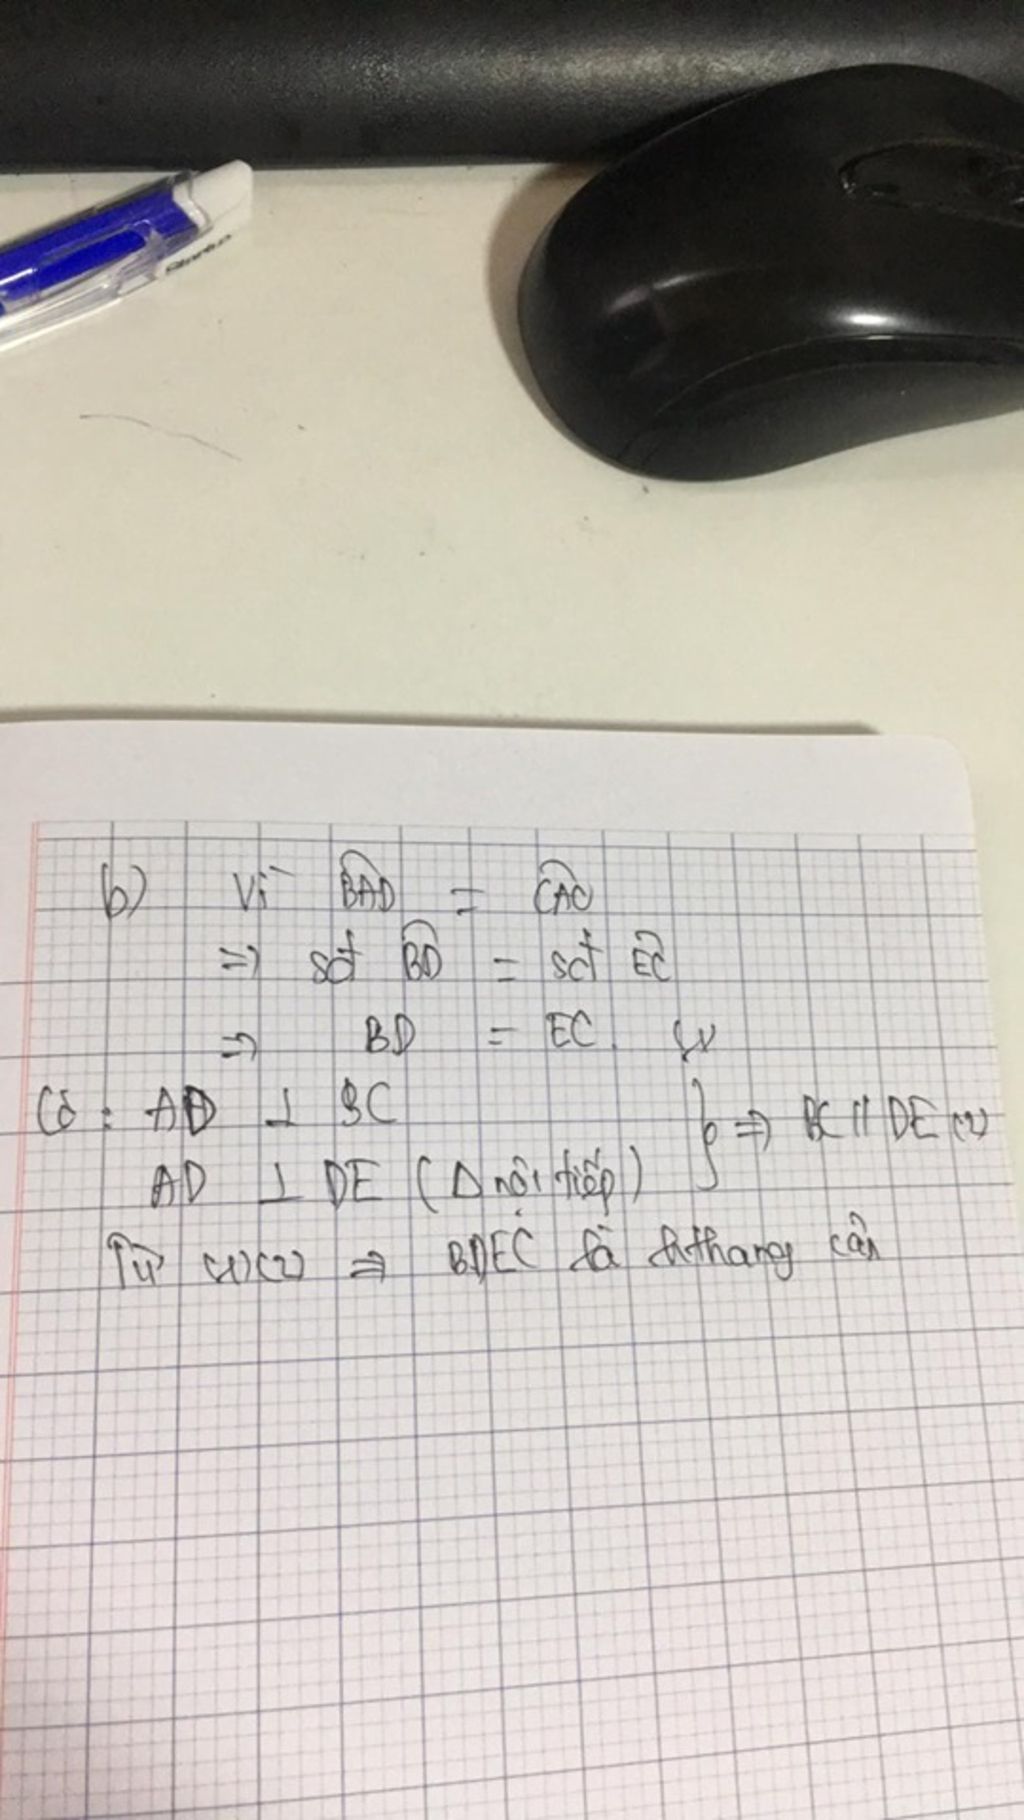 b) Vì BAD = CAO
=> sđ BD = sđ EC
=> BD = EC. (1)
Có: AD ⊥ BC
AD ⊥ DE (Δ nội tiếp) } => BC // DE (2)
Từ (1)(2) => BDEC là hthang cân